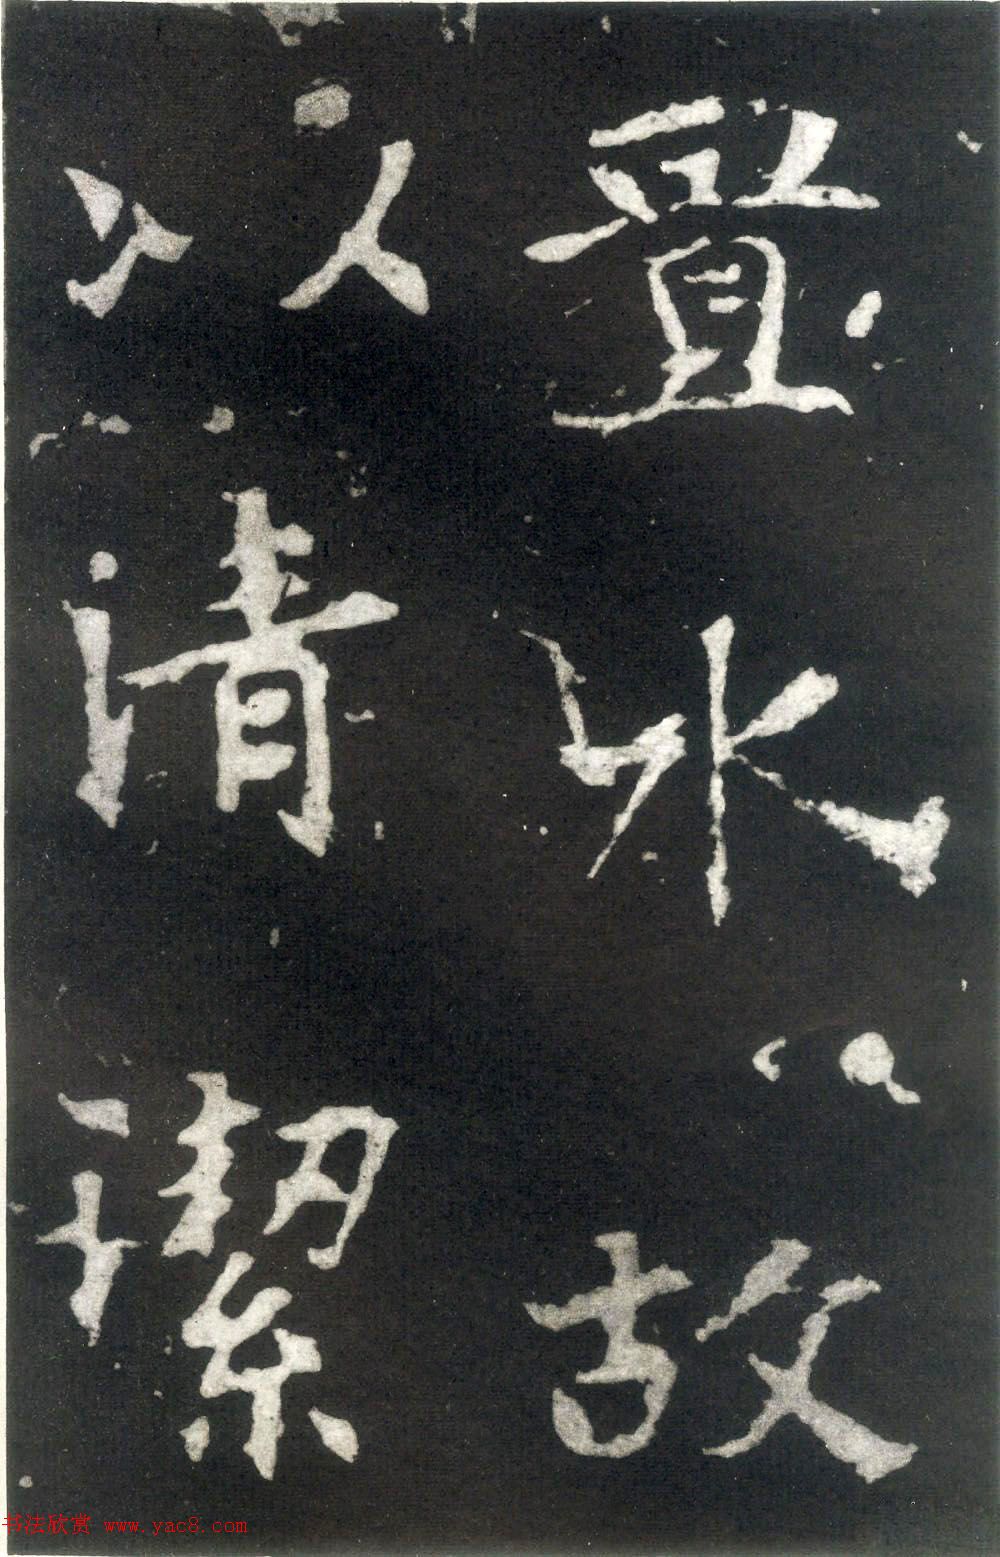 水故
以清潔
书法欣赏 www.yac8.com